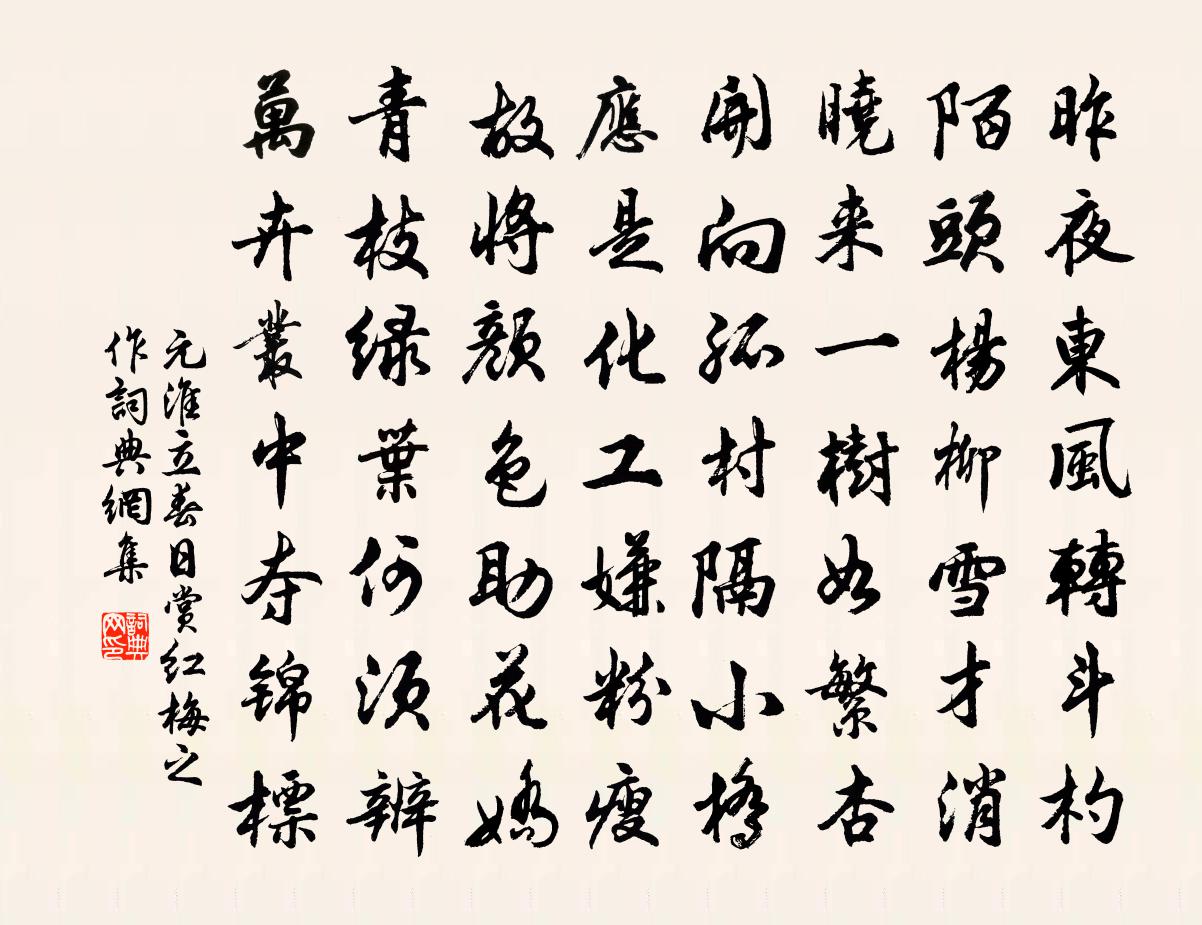 昨夜東風轉斗杓
陌頭楊柳雪才消
曉来一樹如繁杏
開向孤村隔小橋
應是化工嫌粉瘦
故將顏色助花嬌
青枝綠葉何須辨
萬卉叢中夺錦標
元淮立春日赏红梅之
作詞典網集
詞典网印